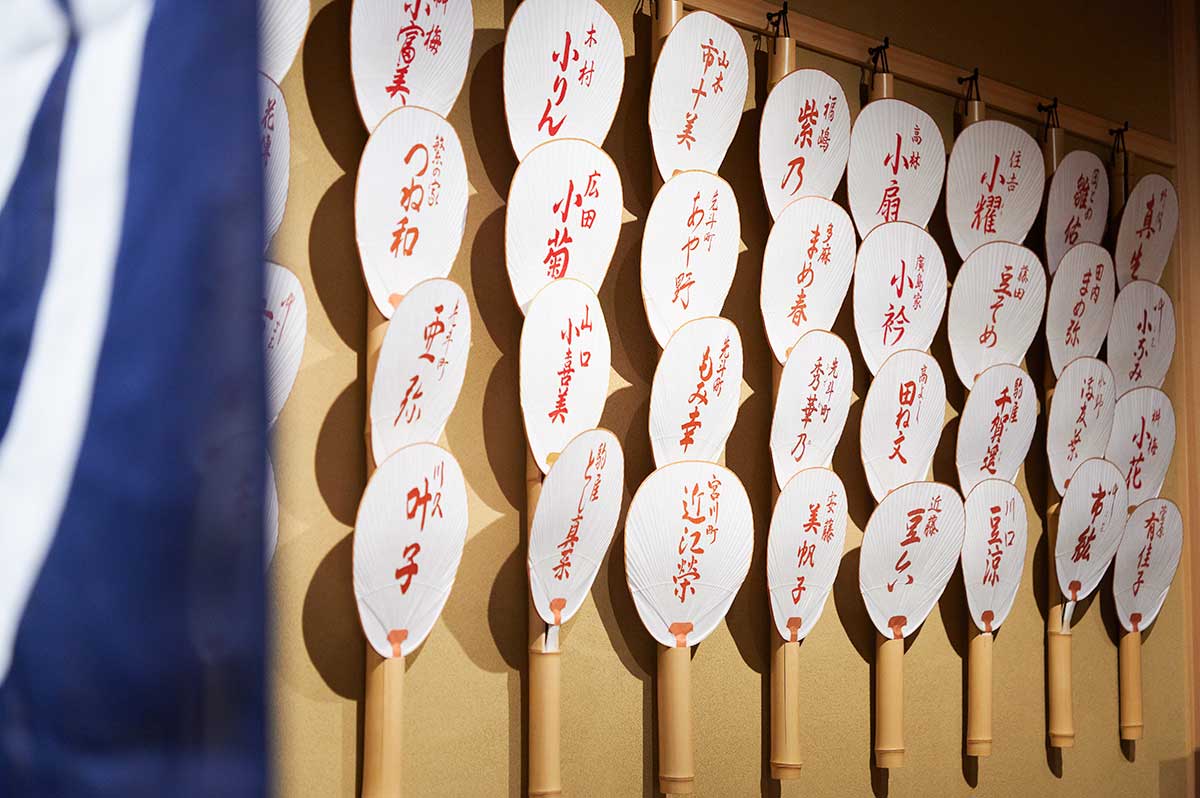 小富美
繁の家
つね和
亜弥
川久
叶子
木村
小りん
広田
小菊
山口
小喜美
駒屋
とし真菜
山木
市十美
先斗町
あや野
先斗町
もみ幸
宮川町
近江榮
福嶋
紫乃
多麻
まめ春
先斗町
秀華乃
安藤
美帆子
高林
小扇
廣島家
小衿
高よし
田ね文
近藤
豆六
住吉
小耀
藤田
駒屋
千賀遥
川口
豆涼
雛佑
田内
まめ弥
市紘
真生
小花
有佳子